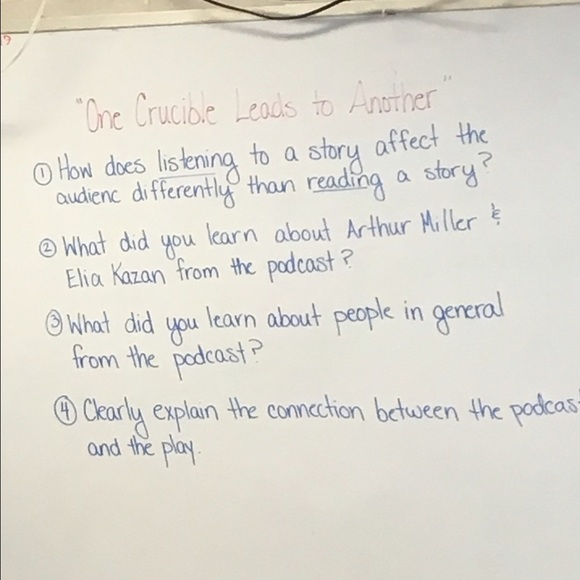 ?
"One Crucible Leads to Another"
① How does listening to a story affect the
audienc differently than reading a story?
② What did you learn about Arthur Miller &
Elia Kazan from the podcast?
③ What did you learn about people in general
from the podcast?
④ Clearly explain the connection between the podcas
and the play.